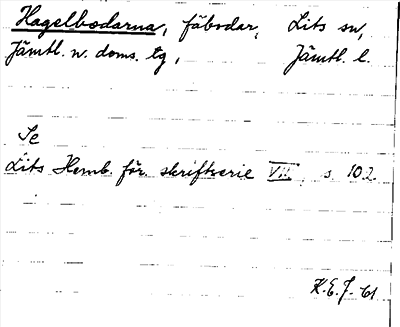 Hagelbodarna, fäbodar, Lits sn,
Jämtl. n. doms. tg, Jämtl. l.
Se
Lits Hemb. för. skriftserie VII, s. 102
K.E.J. -61